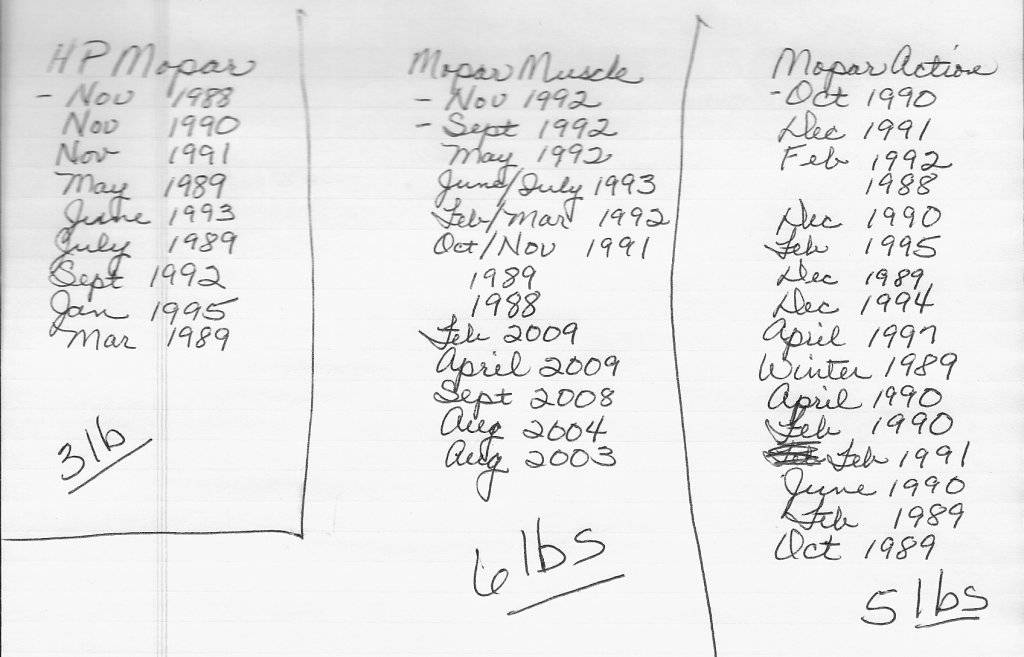 HP Mopar
- Nov 1988
Nov 1990
Nov 1991
May 1989
June 1993
July 1989
Sept 1992
Jan 1995
Mar 1989
3 lb
Mopar Muscle
- Nov 1992
- Sept 1992
May 1992
June/July 1993
Feb/Mar 1992
Oct/Nov 1991
1989
1988
Feb 2009
April 2009
Sept 2008
Aug 2004
Aug 2003
6 lbs
Mopar Action
- Oct 1990
Dec 1991
Feb 1992
1988
Dec 1990
Feb 1995
Dec 1989
Dec 1994
April 1997
Winter 1989
April 1990
Feb 1990
Feb 1991
June 1990
Feb 1989
Oct 1989
5 lbs